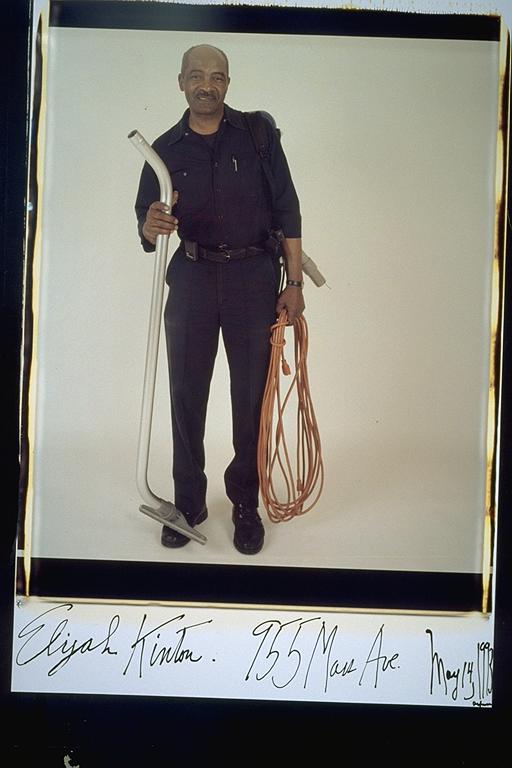 Elijah Kinton. 955 Mass Ave. May 14, 1993